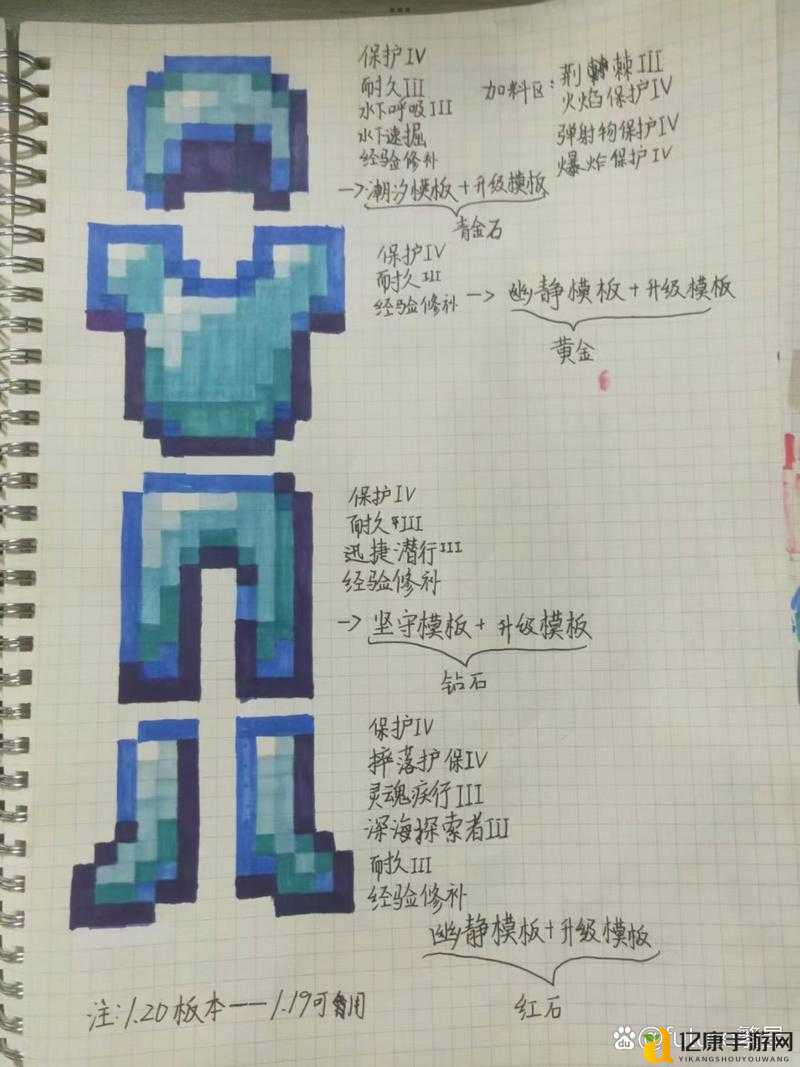 保护IV
耐久III
水下呼吸III
水下速掘
经验修补
加料区：荆棘III
火焰保护IV
弹射物保护IV
爆炸保护IV
→潮汐模板+升级模板
青金石
保护IV
耐久III
经验修补 → 幽静模板+升级模板
黄金
保护IV
耐久III
迅捷潜行III
经验修补
→ 坚守模板+升级模板
钻石
保护IV
摔落护保IV
灵魂疾行III
深海探索者III
耐久III
经验修补
幽静模板+升级模板
红石
注：1.20板本——1.19可用
Bai du @future繁星
亿康手游网
YIKANGSHOUYOUWANG